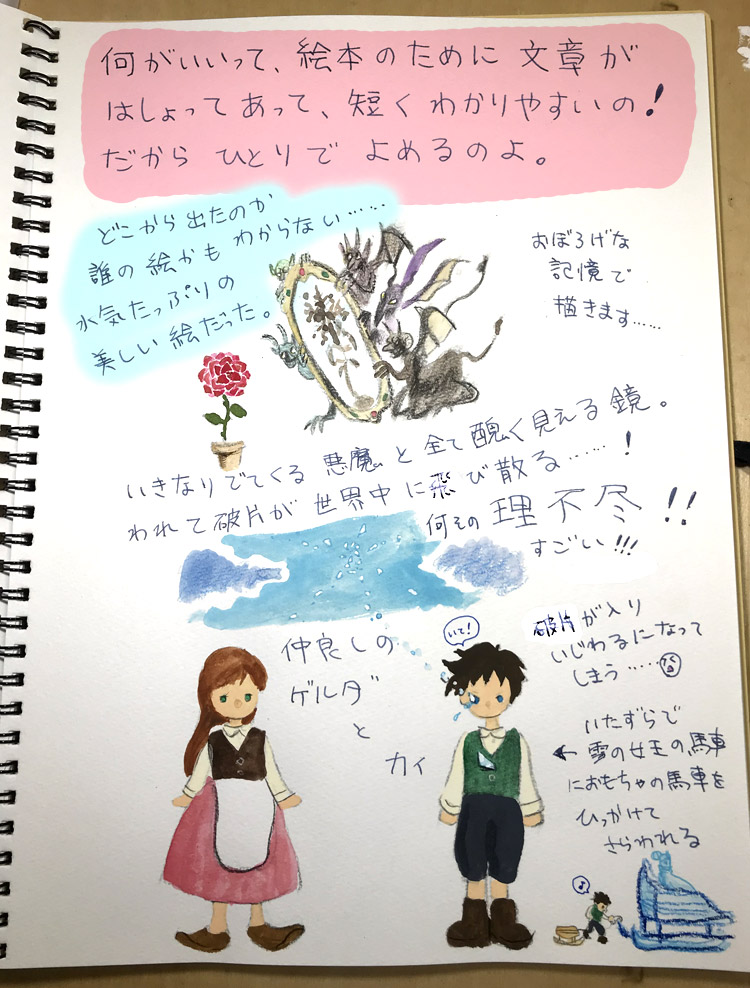 何がいいって、絵本のために文章が
はしょってあって、短くわかりやすいの!
だからひとりでよめるのよ。
どこから出たのか
誰の絵かもわからない……
水気たっぷりの
美しい絵だった。
おぼろげな
記憶で
描きます……
いきなりでてくる悪魔と全て醜く見える鏡。
われて破片が世界中に飛び散る……!
何その理不尽!!
すごい!!!
仲良しの
ゲルダ
と
カイ
いて!
破片が入り
いじわるになって
しまう……
いたずらで
←雪の女王の馬車
におもちゃの馬車を
ひっかけて
さらわれる
♪